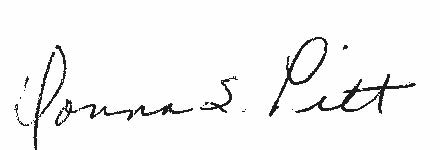 Donna S. Pitt